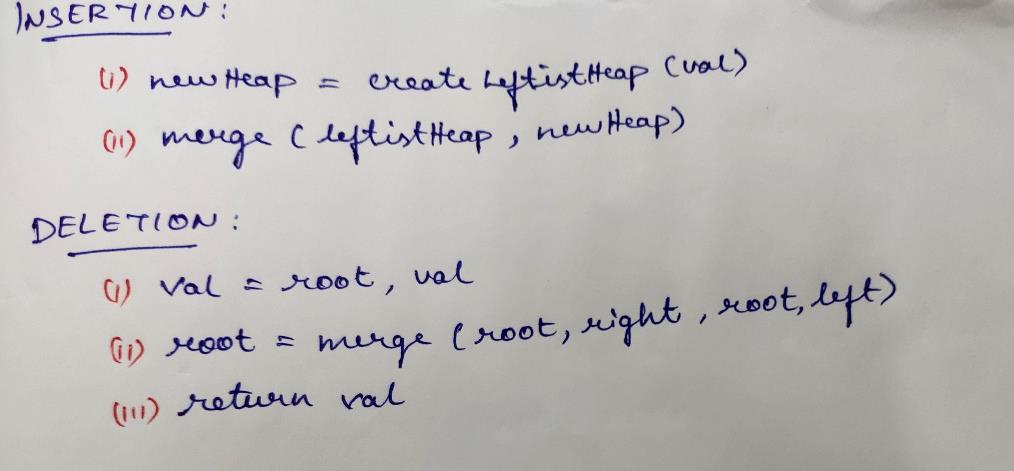 INSERTION:
(i) newHeap = create LeftistHeap (val)
(ii) merge ( leftistHeap , newHeap)
DELETION :
(i) val = root, val
(ii) root = merge (root, right , root, left)
(iii) return val